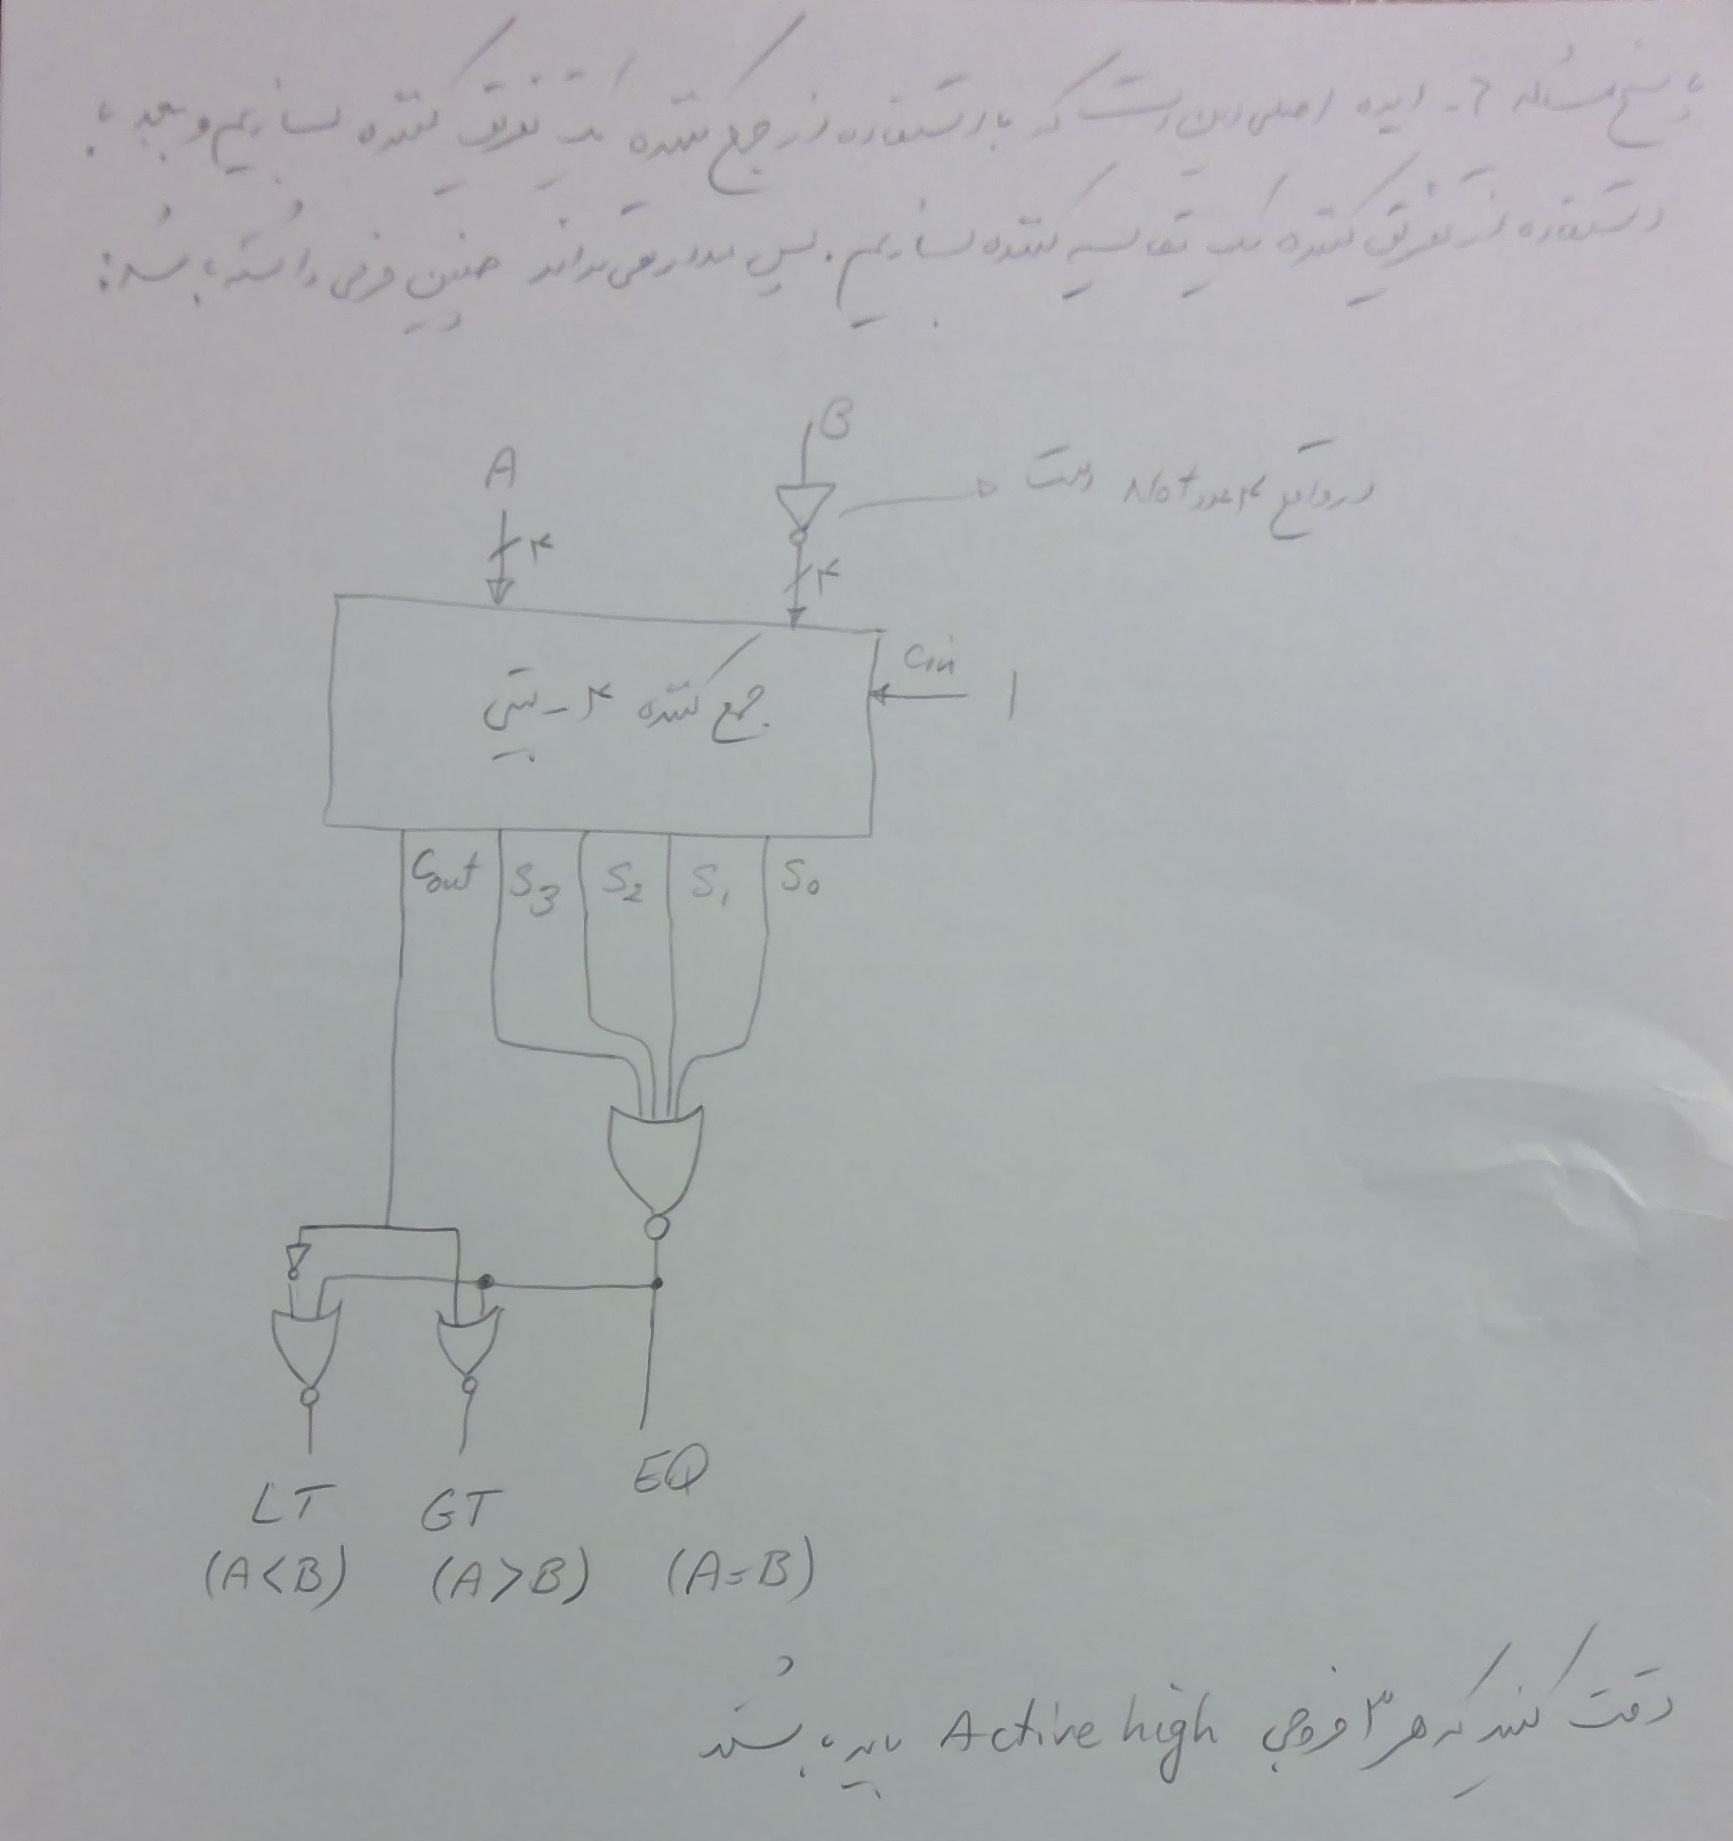 پاسخ مسئله ۲- ایده اصلی این است که با استفاده از جمع کننده یک تفریق کننده بسازیم و بعد با
استفاده از تفریق کننده یک مقایسه کننده بسازیم. پس مدار می‌تواند چنین فرمی داشته باشد:
B
A
در واقع ۴ عدد Not است
۴
۴
Cin
1
جمع کننده ۴-بیتی
Cout S3 S2 S1 S0
LT GT EQ
(A<B) (A>B) (A=B)
دقت کنید که هر ۳ خروجی Active high باید باشند